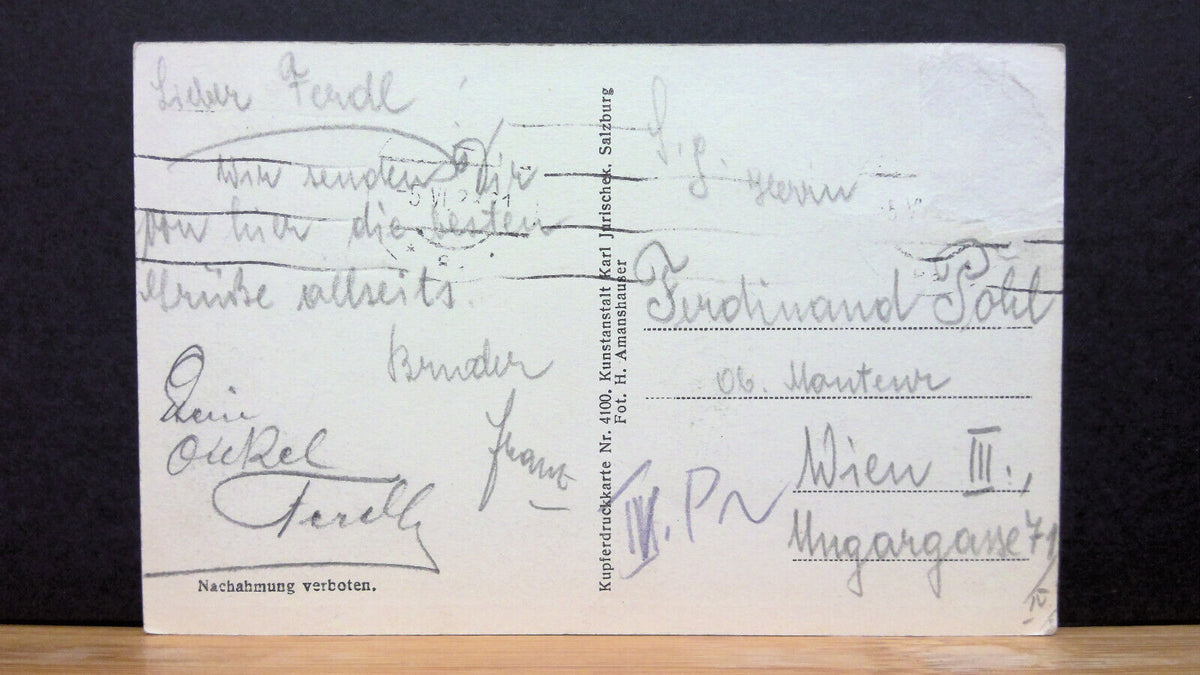 Lieber Ferdl
Wir senden Dir
von hier die besten
Grüße allseits.
Bruder
Franz
Dein
Onkel
Ferdl
Nachahmung verboten.
Kupferdruckkarte Nr. 4100, Kunstanstalt Karl Jurischek, Salzburg
Fot. H. Amanshauser
S. g. Herrn
Ferdinand Pohl
Ob. Monteur
Wien III.,
Ungargasse 71
/IV
IV.